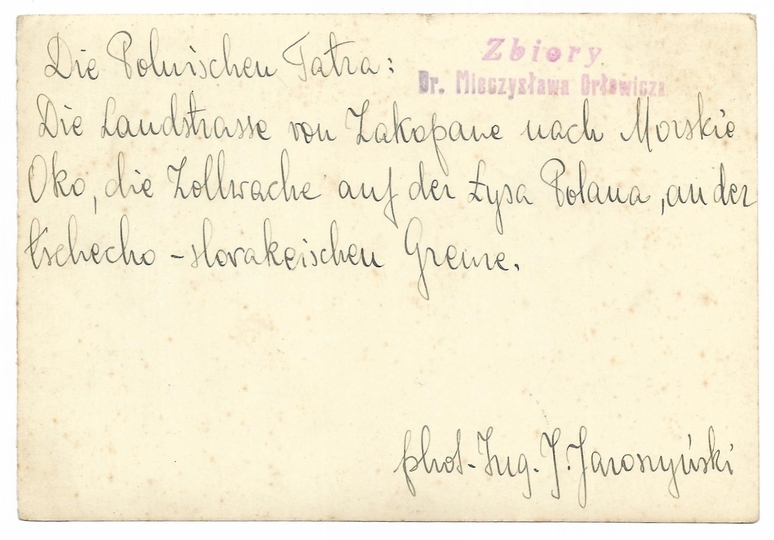 Die Polnischen Tatra:
Zbiory
Dr. Mieczysława Orłowicza
Die Landstrasse von Zakopane nach Morskie
Oko, die Zollwache auf der Łysa Polana, an der
tschecho-slovakeischen Grenze.
phot. Ing. J. Jaroszyński